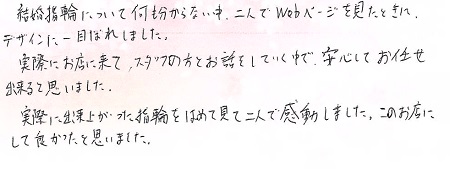 結婚指輪について何も分からない中、二人でWebページを見たときに、
デザインに一目ぼれしました。
実際にお店に来て、スタッフの方とお話をしていく中で、安心してお任せ
出来ると思いました。
実際に出来上がった指輪をはめて見て二人で感動しました。このお店に
して良かったと思いました。